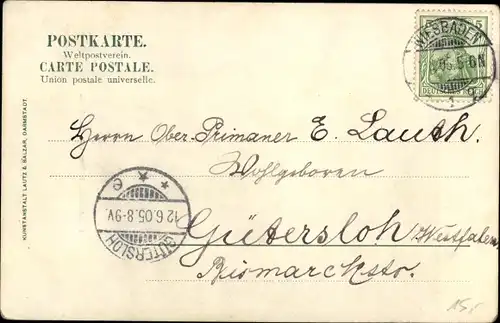 POSTKARTE.
Weltpostverein.
CARTE POSTALE.
Union postale universelle.
5 5
DEUTSCHES
WIESBADEN
05.5-6N
Herrn Ober-Primaner E. Lauth.
Wohlgeboren
Gütersloh i/Westfalen
Bismarckstr.
12.6.05.8-9V
GÜTERSLOH
KUNSTANSTALT LAUTZ & BALZAR, DARMSTADT.
15,-